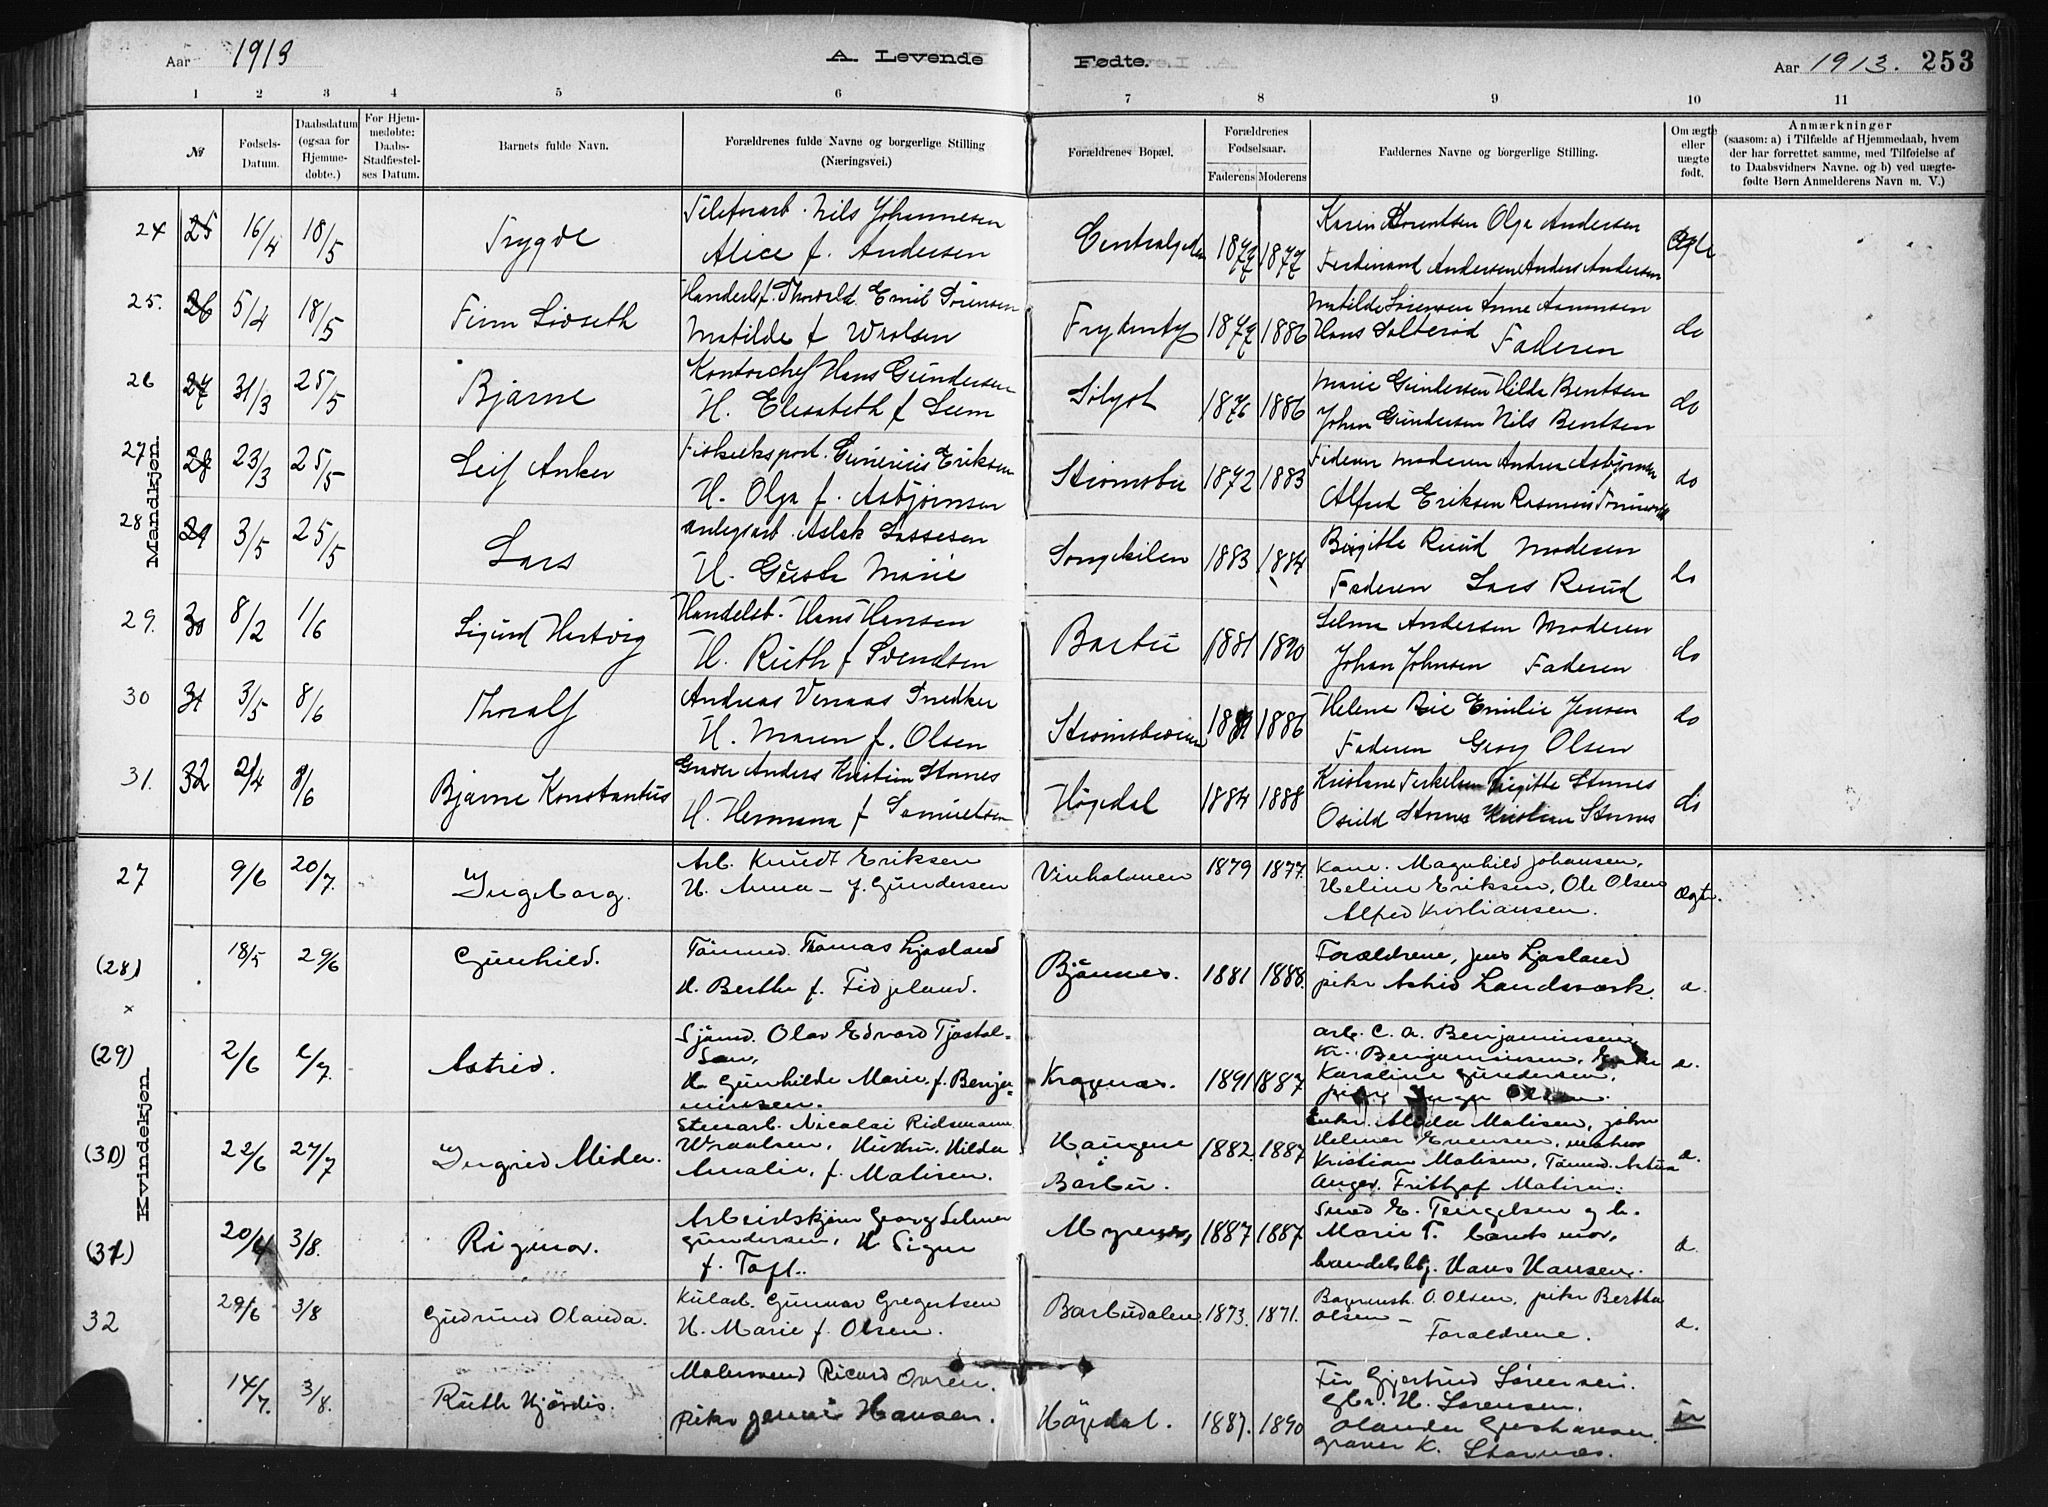 Aar 1913 A. Levende Fødte. Aar 1913. 253
1 2 3 4 5 6 7 8 9 10 11
№ Fødsels-Datum. Daabsdatum (ogsaa for Hjemmedøbte.) For Hjemmedøbte: Daabs-Stadfæstelses Datum. Barnets fulde Navn. Forældrenes fulde Navne og borgerlige Stilling (Næringsvei.) Forældrenes Bopæl. Forældrenes Fødselsaar. Faderens Moderens Faddernes Navne og borgerlige Stilling. Om ægte eller uægte født. Anmærkninger
(saasom: a) i Tilfælde af Hjemmedaab, hvem
der har forrettet samme, med Tilføielse af
to Daabsvidners Navne. og b) ved uægte-
fødte Børn Anmelderens Navn m. V.)
Mandkjøn.
24 25 16/4 18/5 Trygve Nils Johannesen
Alice f. Andersen 1877 Karin Olga Andersen
Ferdinand Andersen Anders Andersen Ægte
25. 26 5/4 18/5 Finn Sivseth Thorvald Emil Sörensen
Matilde f 1886 Matilde Sörensen Anne Aanonsen
Hans Faderen do
26 27 31/3 25/5 Bjarne Kontorchef Hans Gundersen
H. Elisabeth f 1876 1886 Marie Gundersen Hilda Bentsen
Johan Gundersen Nils Bentsen do
27 28 23/3 25/5 Leif Anker Fiskeeksport. Eriksen
H. Olga f. Asbjörnsen Strömsbu 1872 1883 Faderen Moderen Andrea Asbjörnsen
Alfred Eriksen Rasmus do
28 29 3/5 25/5 Lars Anlegsarb. Aslak Lassesen
H. Marie Songekilen 1883 1884 Birgitte Ruud Moderen
Faderen Lars Ruud do
29. 30 8/2 1/6 Sigurd Hartvig Handelsb. Hans Hansen
H. Ruth f Svendsen Barbu 1881 1890 Selma Andersen Moderen
Johan Johnsen Faderen do
30 31 3/5 8/6 Thoralf Andreas Snedker
H. Maren f. Olsen 1886 Helene Emilie Jensen
Faderen Georg Olsen do
31. 32 2/4 8/6 Bjarne Konstantus Anders Kristian
H. Hermana f Samuelsen Högedal 1884 1888 Birgitte
Kristian do
Kvindekjøn.
27 9/6 20/7. Ingeborg. Arb. Knudt Eriksen
H. Anna – f. Gundersen Vinholmen 1879 1877. Kone. Magnhild Johansen,
Heline Eriksen, Ole Olsen
Alfred Kristiansen. Ægte.
(28) 18/5 29/6 Gunhild. Tömmd. Tomas Ljosland
H. Berthe f. Fidjeland. Bjönnes. 1881 1888. Forældrene, Jens Ljosland
pike Astrid Landsværk. æ.
x
(29) 2/6 6/7. Astrid. Sjömd. Olav Edvard Tjostol-
sen,
H. Gunhilde Marie, f. Benja-
minsen. Kragenæs. 1891 1887 arb. C. A. Benjaminsen,
Kr. Benjaminsen, Enke
Karoline Gundersen,
pike Inga Olsen. æ.
(30) 22/6 27/7 Ingrid Mider. Stenarb. Nicolai Ridsmann
Wraalsen, Hustru, Hilda
Amalie, f. Matisen. Haugene
i
Barbu. 1882. 1887 Enke. Matisen, John
Helmer Evensen,
Kristian Matisen, Tömmd. Artur
Anger. Frithjof Matisen. æ.
(31) 20/4 3/8. Rigmor. Arbeidskjörer Georg Selmer
Gundersen, H. Signe
f. Toft. Myrene, 1887 1887 Smed E. Tengelsen og h.
Marie T. barnets mor,
handelsbtj. Hans Hansen. æ.
32 29/6 3/8 Gudrund Olanda. Kularb. Gunnar Gregertsen
H. Marie f. Olsen. Barbudalen 1873. 1871. O. Olsen, pike Bertha
Olsen –
Forældrene. æ.
14/7. 3/8. Ruth Hjördis. Malersvend Ricard
pike Jenni Hansen. Högedal. 1887. 1890 Fru Gjertrud Sörensen.
H. Sörensen.
Olanda Gustavsen
graver K. Stornæs.